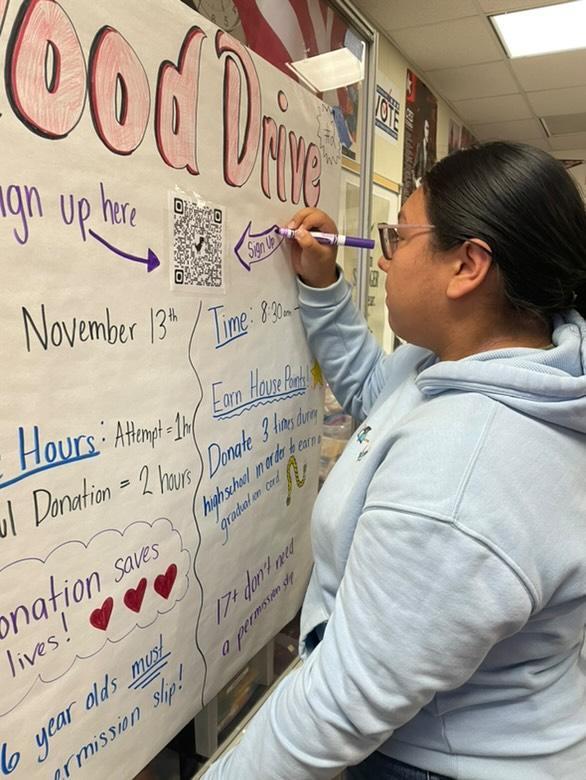 ood Drive
ign up here
Sign Up
November 13th
Time: 8:30am -
Hours: Attempt = 1hr
ul Donation = 2 hours
Earn House Points!
Donate 3 times during
highschool in order to earn a
graduation cord
onation saves
lives!
17+ don't need
a permission slip
6 year olds must
ermission slip!
VOTE